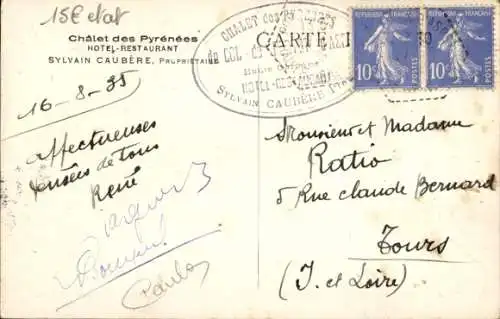 15€ etat
Châlet des Pyrénées
HOTEL-RESTAURANT
SYLVAIN CAUBÈRE, PROPRIÉTAIRE
CHALET des PYRÉNÉES
du COL
HOTEL-RESTAURANT
SYLVAIN CAUBÈRE
CARTE
RÉPUBLIQUE FRANÇAISE
10c
POSTES
RÉPUBLIQUE FRANÇAISE
10c
POSTES
16-8-35
Affectueuses
pensées de tous
René
Monsieur et Madame
Ratio
5 Rue claude Bernard
Tours
(I. et Loire)